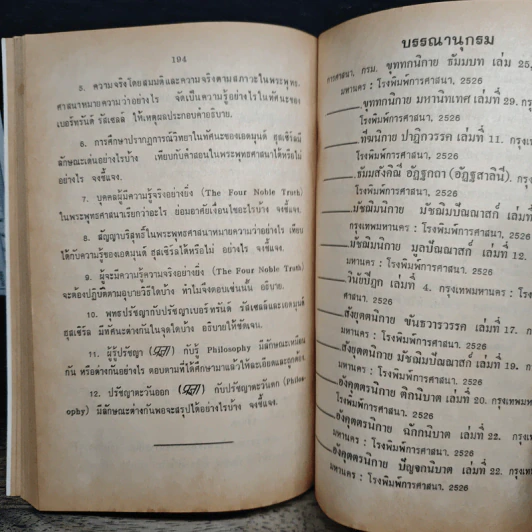 194
5. ความจริงโดยสมมติและความจริงตามสภาวะในพระพุทธ-
ศาสนาหมายความว่าอย่างไร จัดเป็นความรู้อย่างไรในทัศนะของ
เบอร์ทรันด์ รัสเซลล์ ให้เหตุผลประกอบคำอธิบาย.
6. การศึกษาปรากฏการณ์วิทยาในทัศนะของเอดมุนด์ ฮุสเซิร์ลมี
ลักษณะเด่นอย่างไรบ้าง เทียบกับคำสอนในพระพุทธศาสนาได้หรือไม่
อย่างไร จงชี้แจง.
7. บุคคลผู้มีความรู้จริงอย่างยิ่ง (The Four Noble Truth)
ในพระพุทธศาสนาเรียกว่าอะไร ย่อมอาศัยเงื่อนไขอะไรบ้าง จงชี้แจง.
8. สัญญาบริสุทธิ์ในพระพุทธศาสนาหมายความว่าอย่างไร เทียบ
ได้กับความรู้ของเอดมุนด์ ฮุสเซิร์ลได้หรือไม่ อย่างไร จงชี้แจง.
9. ผู้จะมีความรู้ความจริงอย่างยิ่ง (The Four Noble Truth)
จะต้องปฏิบัติตามอุบายวิธีใดบ้าง ทำไมจึงตอบเช่นนั้น อธิบาย.
10. พุทธปรัชญากับปรัชญาเบอร์ทรันด์ รัสเซลล์และเอดมุนด์
ฮุสเซิร์ล มีทัศนะต่างกันในจุดใดบ้าง อธิบายให้ชัดเจน.
11. ผู้รู้ปรัชญา กับรู้ Philosophy มีลักษณะเหมือน
กัน หรือต่างกันอย่างไร ตอบตามที่ได้ศึกษามาแล้วให้ละเอียดและถูกต้อง.
12. ปรัชญาตะวันออก กับปรัชญาตะวันตก (Philos-
ophy) มีลักษณะต่างกันพอจะสรุปได้อย่างไรบ้าง จงชี้แจง.
บรรณานุกรม
การศาสนา, กรม. ขุททกนิกาย ธัมมบท เล่ม 25,
มหานคร : โรงพิมพ์การศาสนา, 2526
ขุททกนิกาย มหานิทเทศ เล่มที่ 29.
โรงพิมพ์การศาสนา, 2526
ทีฆนิกาย ปาฏิกวรรค เล่มที่ 11. กรุงเทพ
โรงพิมพ์การศาสนา, 2526
ธัมมสังคิณี อัฏฐกถา (อัฏฐสาลินี).
โรงพิมพ์การศาสนา, 2526
มัชฌิมนิกาย มัชฌิมปัณณาสก์ เล่มที่
กรุงเทพมหานคร : โรงพิมพ์การศาสนา, 2526
มัชฌิมนิกาย มูลปัณณาสก์ เล่มที่ 12.
มหานคร : โรงพิมพ์การศาสนา, 2526
วินัยปิฎก เล่มที่ 4. กรุงเทพมหานคร : โรงพิมพ์
ศาสนา, 2526
สังยุตตนิกาย ขันธวารวรรค เล่มที่ 17.
มหานคร : โรงพิมพ์การศาสนา, 2526
สังยุตตนิกาย เล่มที่ 19.
มหานคร : โรงพิมพ์การศาสนา, 2526
อังคุตตรนิกาย ติกนิบาต เล่มที่ 20. กรุงเทพมหา
โรงพิมพ์การศาสนา, 2526
อังคุตตรนิกาย ฉักกนิบาต เล่มที่ 22.
มหานคร : โรงพิมพ์การศาสนา, 2526
อังคุตตรนิกาย ปัญจกนิบาต เล่มที่ 22.
มหานคร : โรงพิมพ์การศาสนา, 2526